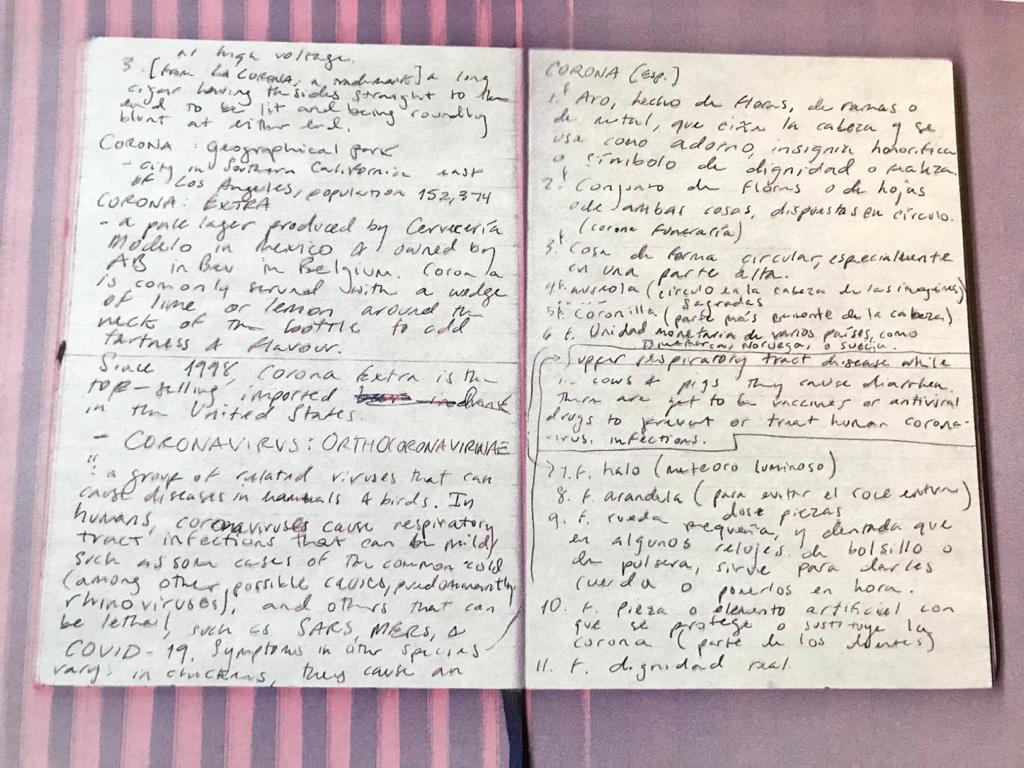 at high voltage.
3. [from La CORONA, a trademark] a long
cigar having the sides straight to the
end to be lit and being roundly
blunt at either end.
CORONA : geographical
- city in Southern California east
of Los Angeles, population 152,374
CORONA: EXTRA
- a pale lager produced by Cervecería
Modelo in Mexico & owned by
AB in Bev in Belgium. Corona
is comonly served with a wedge
of lime or lemon around the
neck of the bottle to add
tartness & flavour.
Since 1998, Corona Extra is the
top-selling imported
in the United States.
- CORONAVIRUS: ORTHOCORONAVIRINAE
" a group of related viruses that can
cause diseases in mammals & birds. In
humans, coronaviruses cause respiratory
tract infections that can be mild,
such as some cases of the common cold
(among other possible causes, predominantly
rhinoviruses), and others that can
be lethal, such as SARS, MERS, &
COVID-19. Symptoms in other species
vary: in chickens, they cause an
CORONA (esp.)
1. f Aro, hecho de flores, de ramas o
de metal, que ciñe la cabeza y se
usa como adorno, insignia honorífica
o símbolo de dignidad o realeza.
2. f Conjunto de flores o de hojas
o de ambas cosas, dispuestas en círculo.
(corona funeraria)
3. f Cosa de forma circular, especialmente
en una parte alta.
4. f. aureola (círculo en la cabeza de las imagines)
sagradas
5. f. coronilla (parte más eminente de la cabeza)
6. f. Unidad monetaria de varios países, como
Dinamarca, Noruega, o Suecia.
Supper respiratory tract disease while
in cows & pigs they cause diarrhea.
There are yet to be vaccines or antiviral
drugs to prevent or treat human corona-
virus infections.
7. f. halo (meteoro luminoso)
8. f. arandela (para evitar el roce entre)
dose piezas
9. f. rueda pequeña, y dentada que
en algunos relojes de bolsillo o
de pulsera, sirve para darles
cuerda o ponerlos en hora.
10. f. pieza o elemento artificial con
que se protege o sustituye la
corona (parte de los dientes)
11. f. dignidad real.